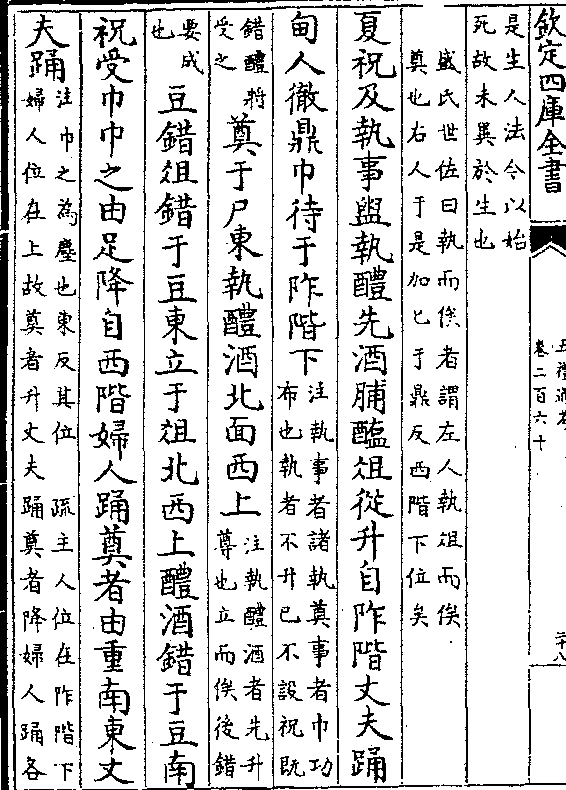 欽定四庫全書
五禮通考
卷二百六十
二十八
是生人法令以始
死故未異於生也
盛氏世佐曰執而俟者謂左人執俎而俟
奠也右人于是加匕于鼎反西階下位矣
夏祝及執事盥執醴先酒脯醢俎從升自阼階丈夫踊
甸人徹鼎巾待于阼階下
注執事者諸執奠事者巾功
布也執者不升已不設祝既
錯醴將
受之
奠于尸東執醴酒北面西上
注執醴酒者先升
尊也立而俟後錯
要成
也
豆錯俎錯于豆東立于俎北西上醴酒錯于豆南
祝受巾巾之由足降自西階婦人踊奠者由重南東丈
夫踊
注巾之為塵也東反其位 疏主人位在阼階下
婦人位在上故奠者升丈夫踊奠者降婦人踊各